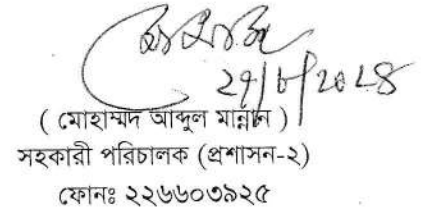 ( মোহাম্মদ আব্দুল মান্নান )
সহকারী পরিচালক (প্রশাসন-২)
ফোনঃ ২২৬৬০৩৯২৫